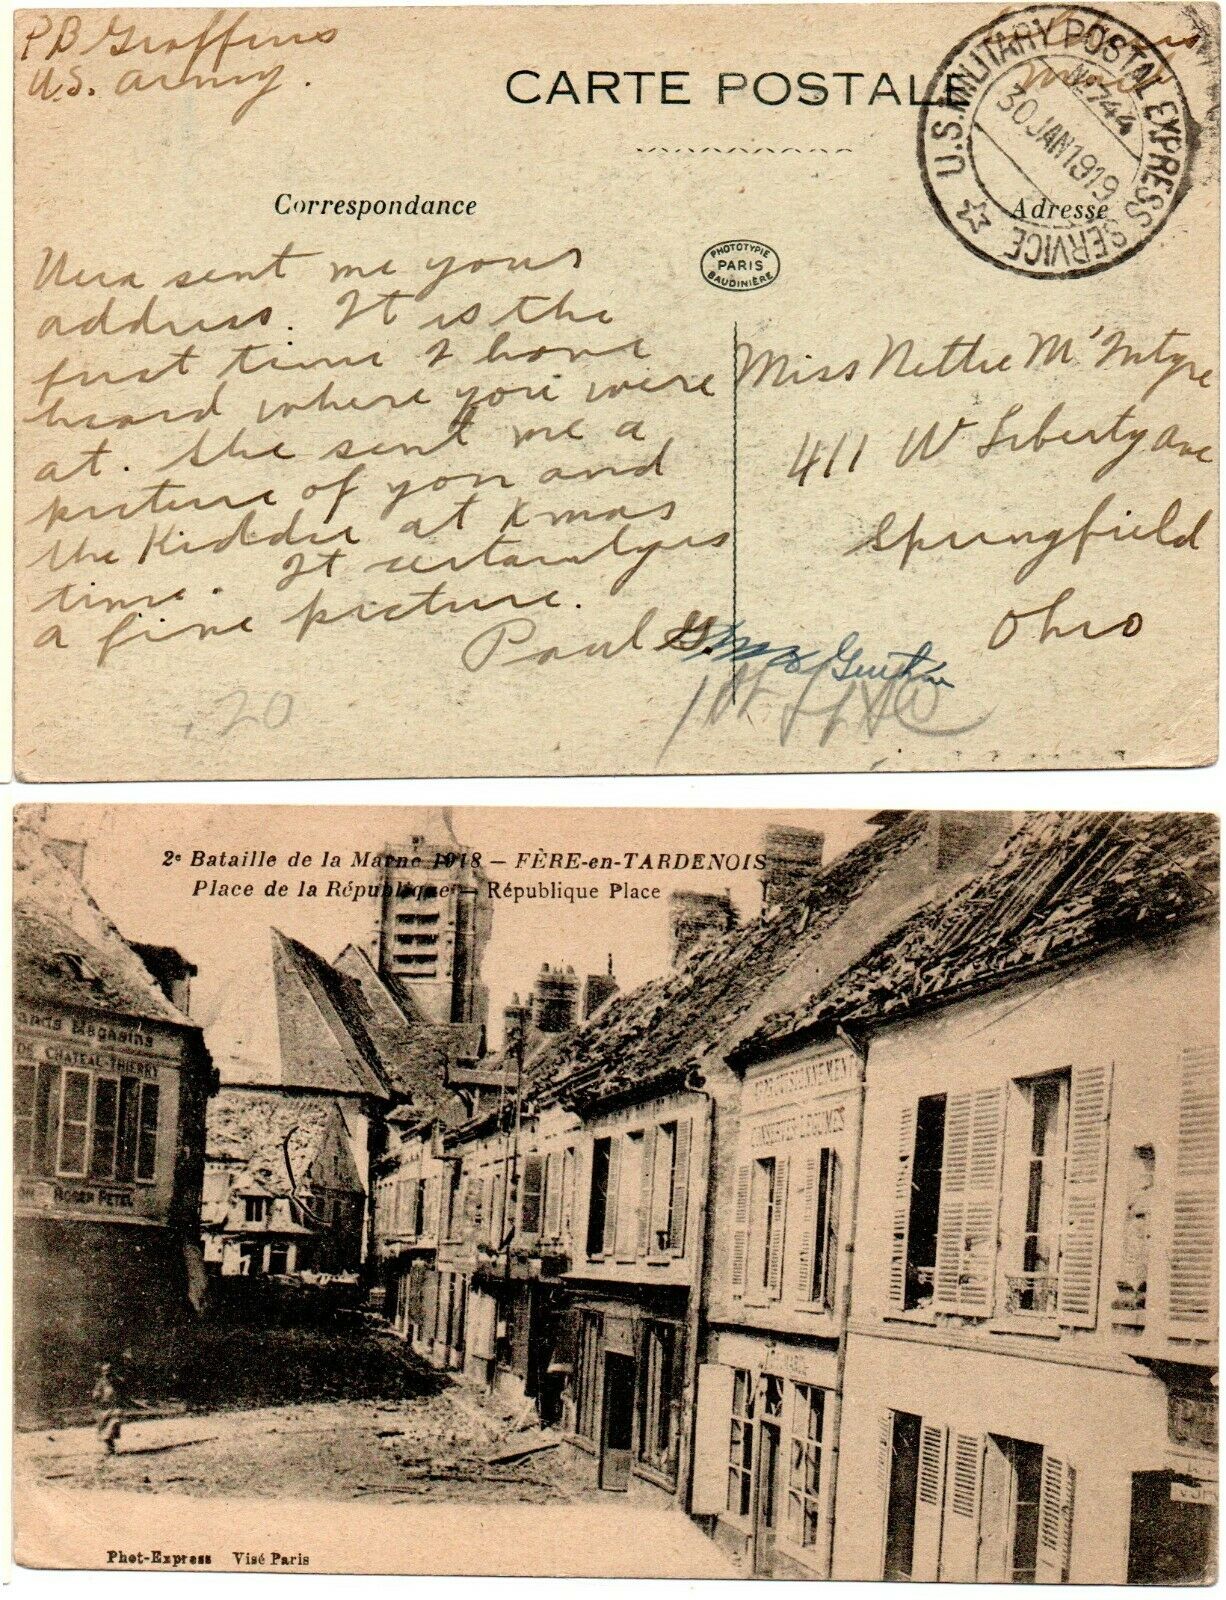 P B Griffins
U.S. Army.
CARTE POSTALE
U.S. MILITARY POSTAL EXPRESS SERVICE
No 744
30 JAN 1919
Correspondance
Adresse
PHOTOTYPIE
PARIS
BAUDINIÈRE
sent me your
address. It is the
first time I have
heard where you were
at. She sent me a
picture of you and
the Kiddie at Xmas
time. It certainly is
a fine picture.
Paul G.
Miss Nettie McIntyre
411 W Liberty Ave
Springfield
Ohio
.20
2e Bataille de la Marne 1918 — FÈRE-en-TARDENOIS
Place de la République — République Place
ands Magasins
CHATEAU THIERRY
ROGER PETEL
APPROVISIONNEMENT
CONSERVES LEGUMES
Phot-Express Visé Paris